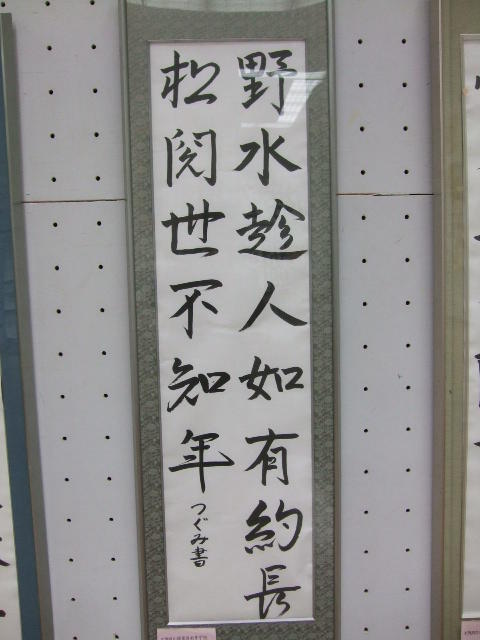 野水趁人如有約長
松閲世不知年
つぐみ書